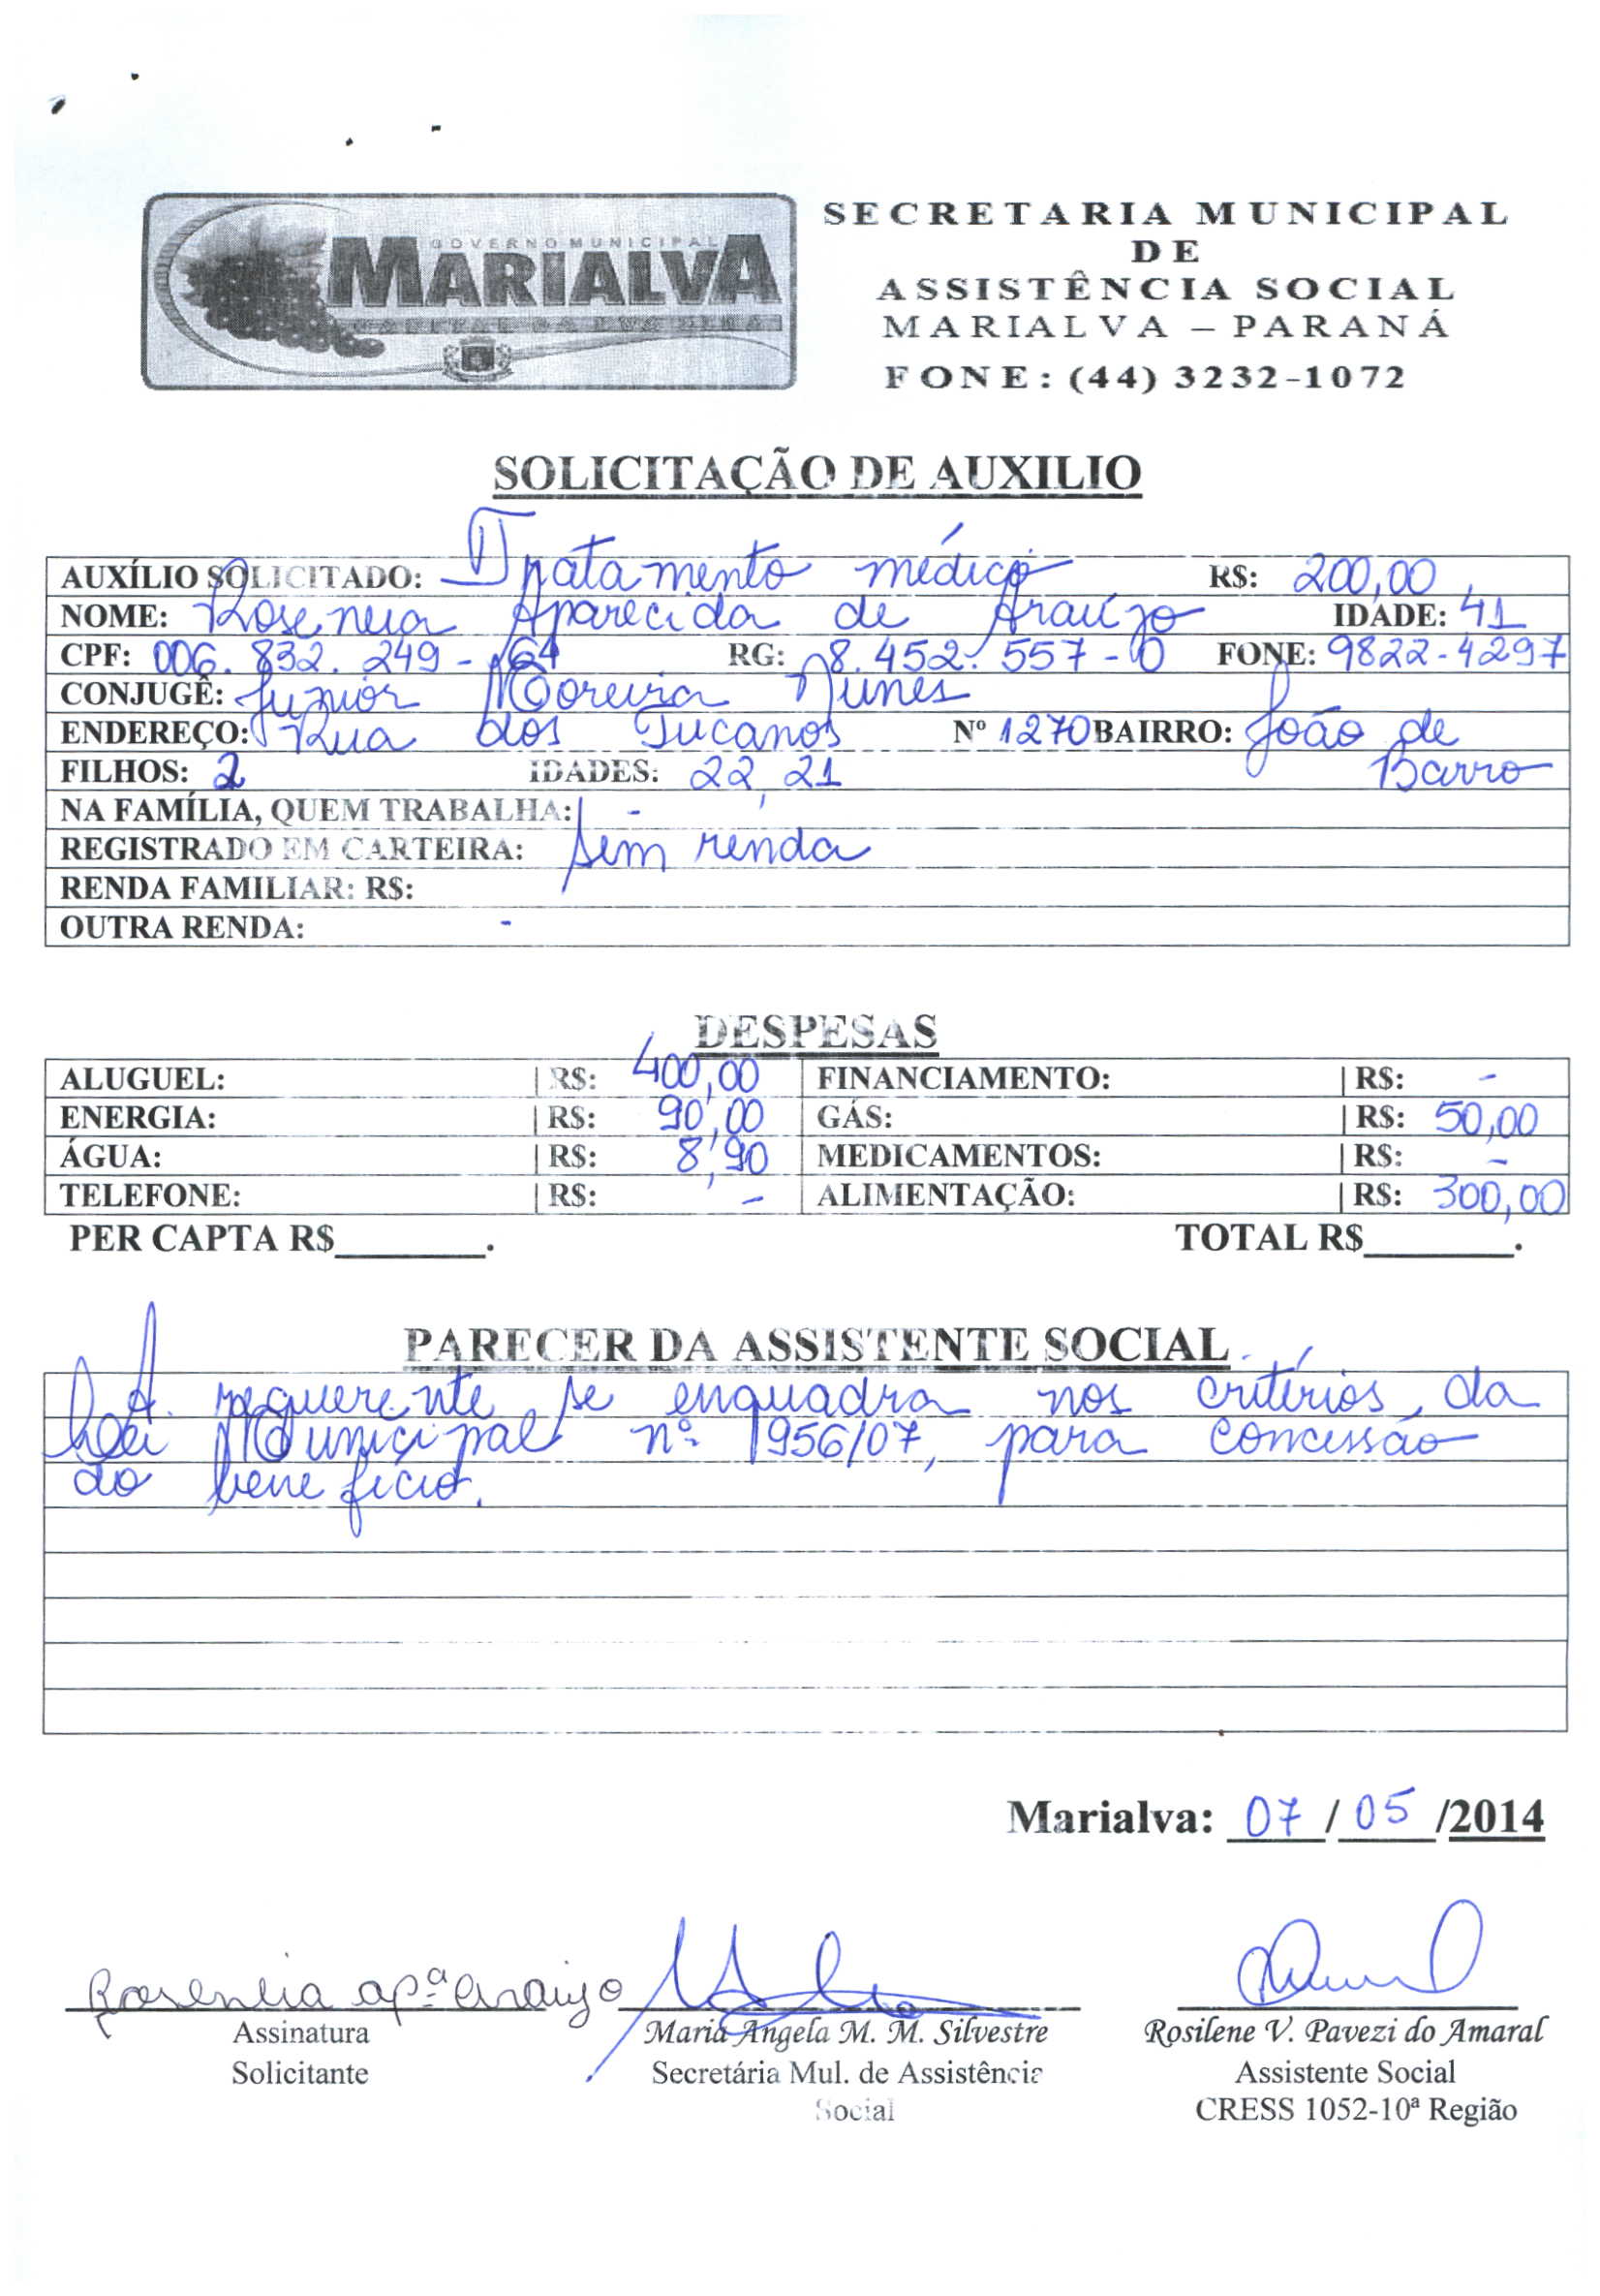 GOVERNO MUNICIPAL
MARIALVA
CAPITAL DA UVA FINA
SECRETARIA MUNICIPAL
DE
ASSISTÊNCIA SOCIAL
MARIALVA – PARANÁ
FONE: (44) 3232-1072
SOLICITAÇÃO DE AUXILIO
AUXÍLIO SOLICITADO: Tratamento médico R$: 200,00
NOME: Roseneia Aparecida de Araújo IDADE: 41
CPF: 006.832.249-64 RG: 8.452.557-0 FONE: 9822-4297
CONJUGÊ: Junior Moreira Nunes
ENDEREÇO: Rua dos Tucanos Nº 1270 BAIRRO: João de
Barro
FILHOS: 2 IDADES: 22, 21
NA FAMÍLIA, QUEM TRABALHA: -
REGISTRADO EM CARTEIRA: sem renda
RENDA FAMILIAR: R$:
OUTRA RENDA: -
DESPESAS
ALUGUEL: | R$: 400,00 FINANCIAMENTO: | R$: -
ENERGIA: | R$: 90,00 GÁS: | R$: 50,00
ÁGUA: | R$: 8,90 MEDICAMENTOS: | R$: -
TELEFONE: | R$: - ALIMENTAÇÃO: | R$: 300,00
PER CAPTA R$________. TOTAL R$________.
PARECER DA ASSISTENTE SOCIAL
A requerente se enquadra nos critérios da
Lei Municipal nº 1956/07, para concessão
do benefício.
Marialva: 07 / 05 /2014
Rosenéia apª Araujo
Assinatura
Solicitante
Maria Angela M. M. Silvestre
Secretária Mul. de Assistência
Social
Rosilene V. Pavezi do Amaral
Assistente Social
CRESS 1052-10ª Região